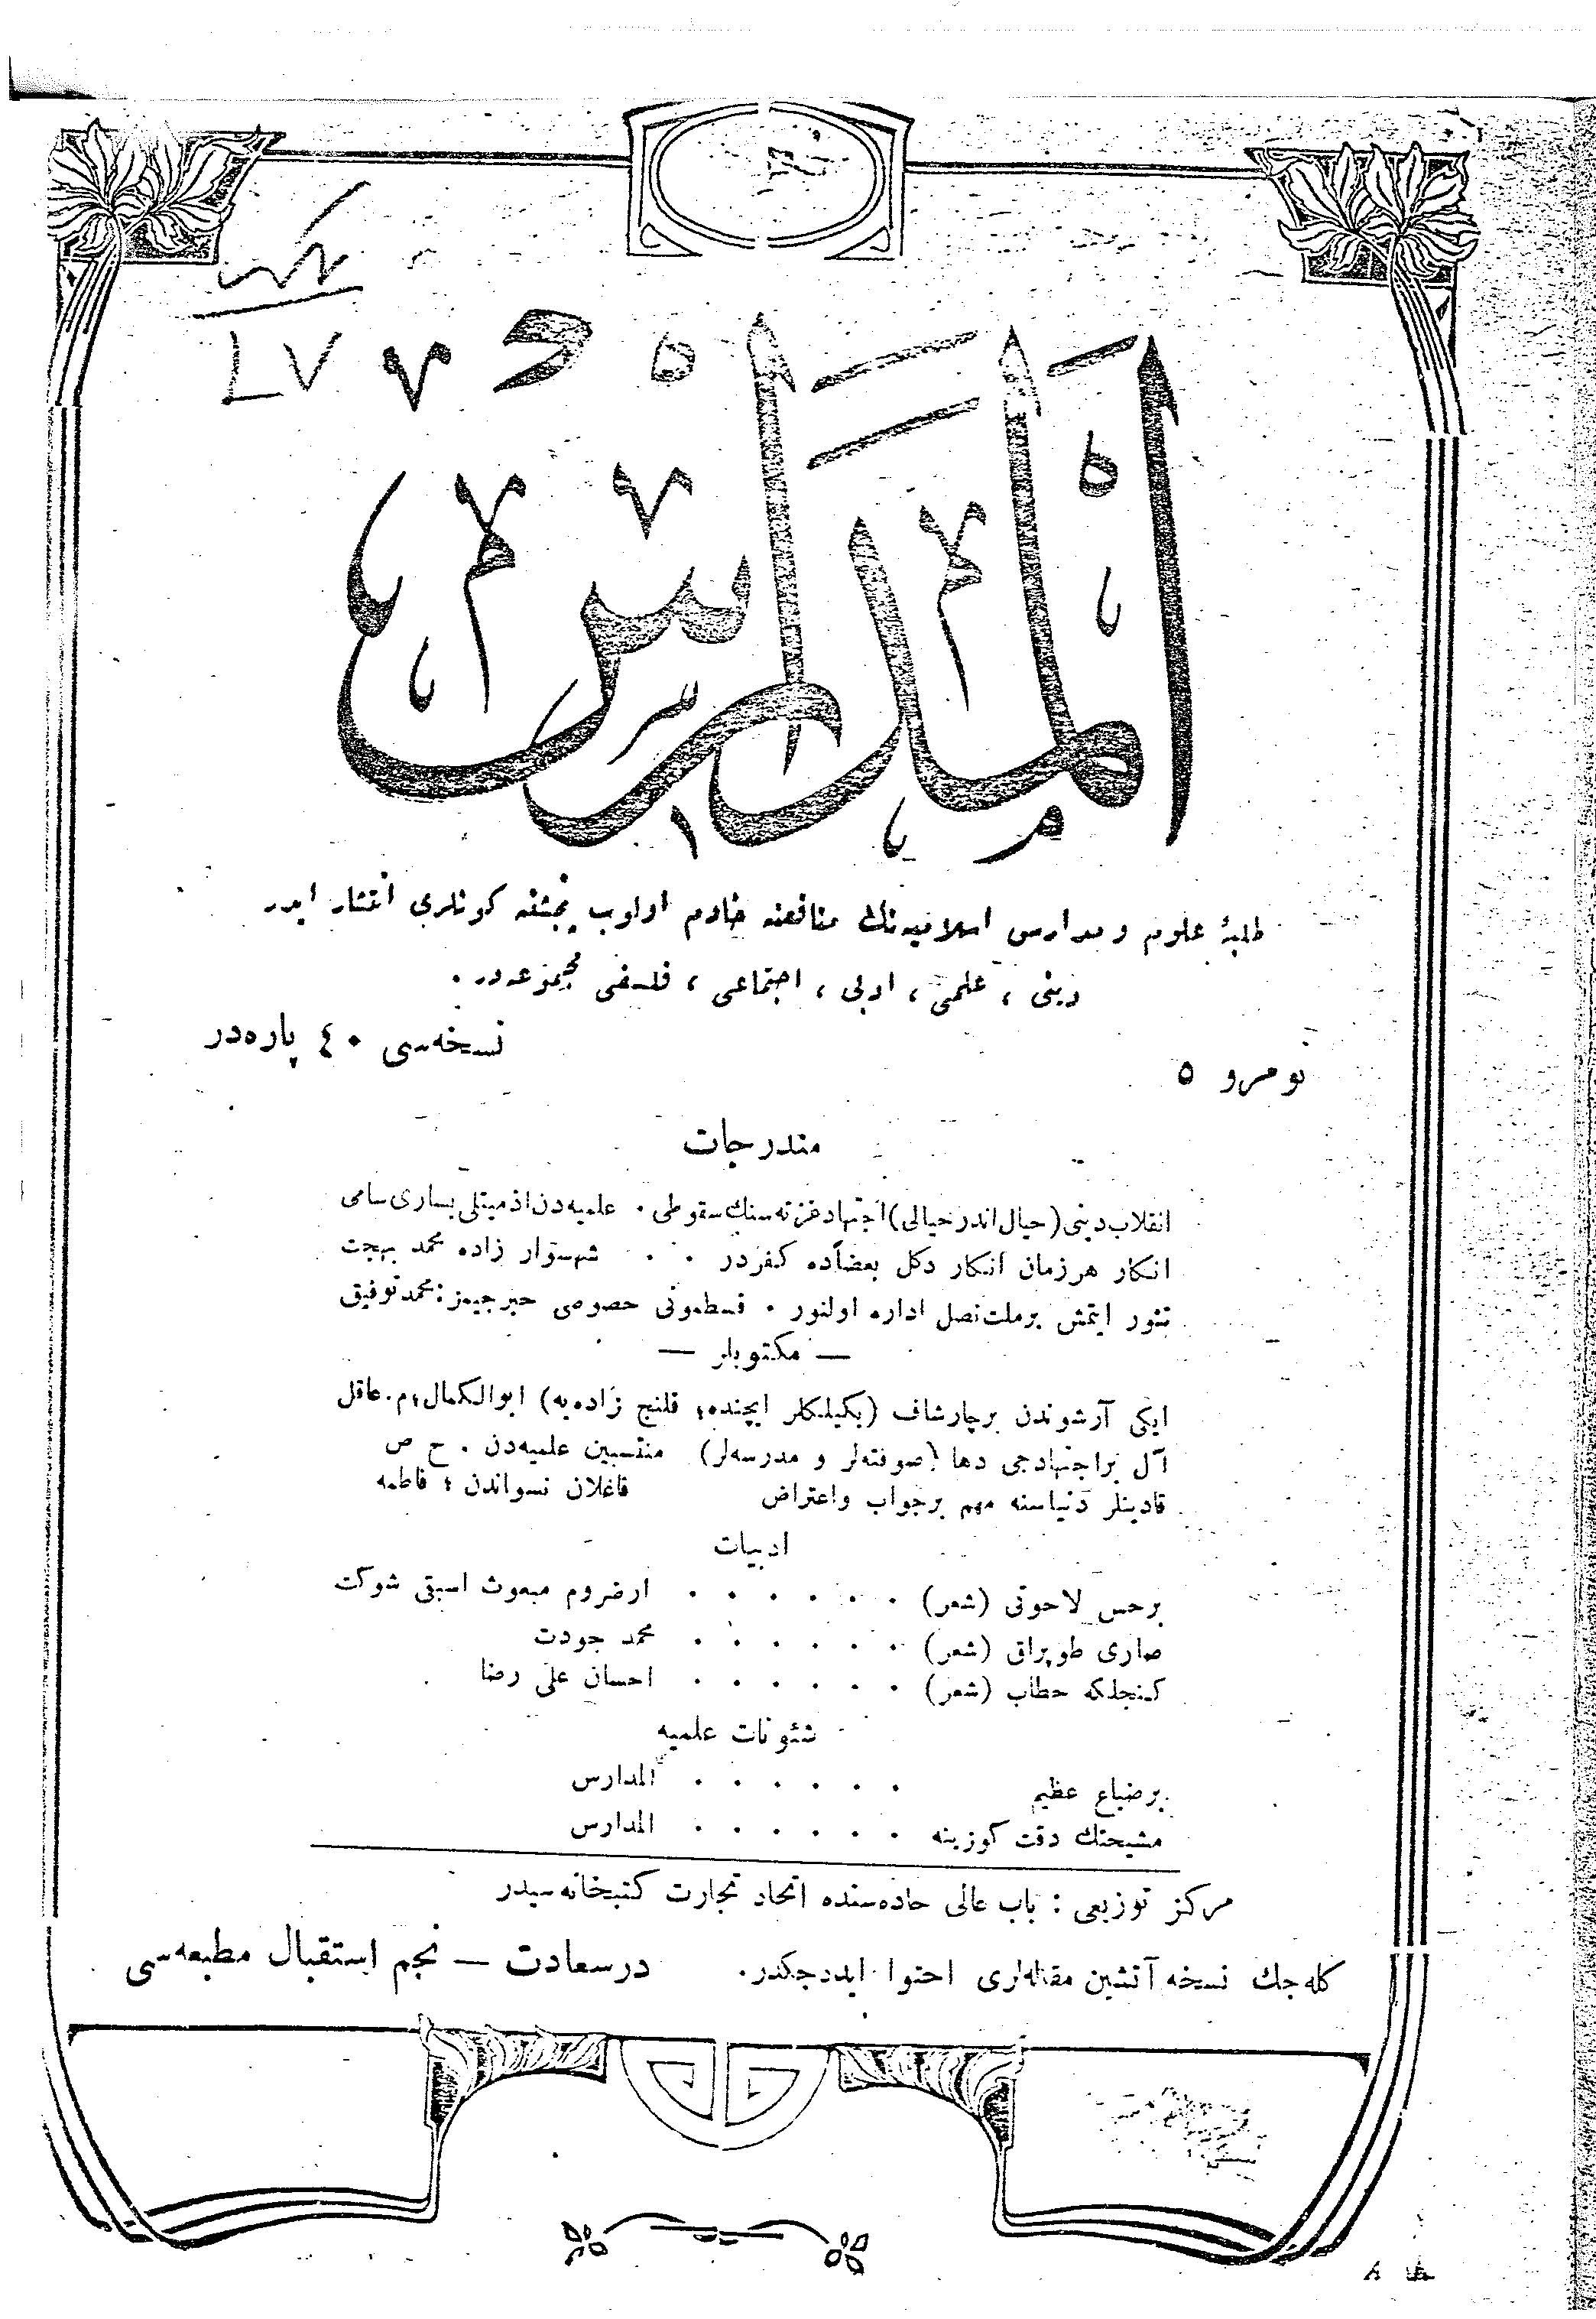 المدارس
طلبهٔ علوم و مدارس اسلامیه‌نك منافعنه خادم اولوب پنجشنبه كونلری انتشار ایدر
دینی ، علمی ، ادبی ، اجتماعی ، فلسفی مجموعه‌در .
نومرو ٥
نسخه‌سی ٤٠ پاره‌در
مندرجات
انقلاب دینی (خیال اندر خیالی) اجتهاد غزته‌سنك سقوطی . علمیه‌دن اذمیتلی یساری سامی
انكار هر زمان انكار دكل بعضاً ده كفردر . . شهسوار زاده محمد بهجت
تنور ایتمش برملت نصل اداره اولنور . قسطمونی خصوصی خبرجیمز : محمد توفیق
— مكتوبلر —
ایكی آرشوندن برچارشاف (یكیلكلر ایچنده ؛ قلنج زاده‌یه) ابوالكمال ؛ م . عاقل
آل براجتهادجی دها (صوفته‌لر و مدرسه‌لر) منتسبین علمیه‌دن . ح ص
قادینلر دنیاسنه مهم برجواب واعتراض فاغلان نسواندن ؛ فاطمه
ادبیات
برحس لاحوتی (شعر) . . . . . . ارضروم مبعوث اسبقی شوكت
صاری طوپراق (شعر) . . . . . . محمد جودت
كنجلكه خطاب (شعر) . . . . . . احسان علی رضا
شئونات علمیه
برضیاع عظیم . . . . . . المدارس
مشیختك دقت كوزینه . . . . . . المدارس
مركز توزیعی : باب عالی جاده‌سنده اتحاد تجارت كتبخانه‌سیدر
كله‌جك نسخه آتشین مقاله‌لری احتوا ایده‌جكدر .
درسعادت — نجم استقبال مطبعه‌سی